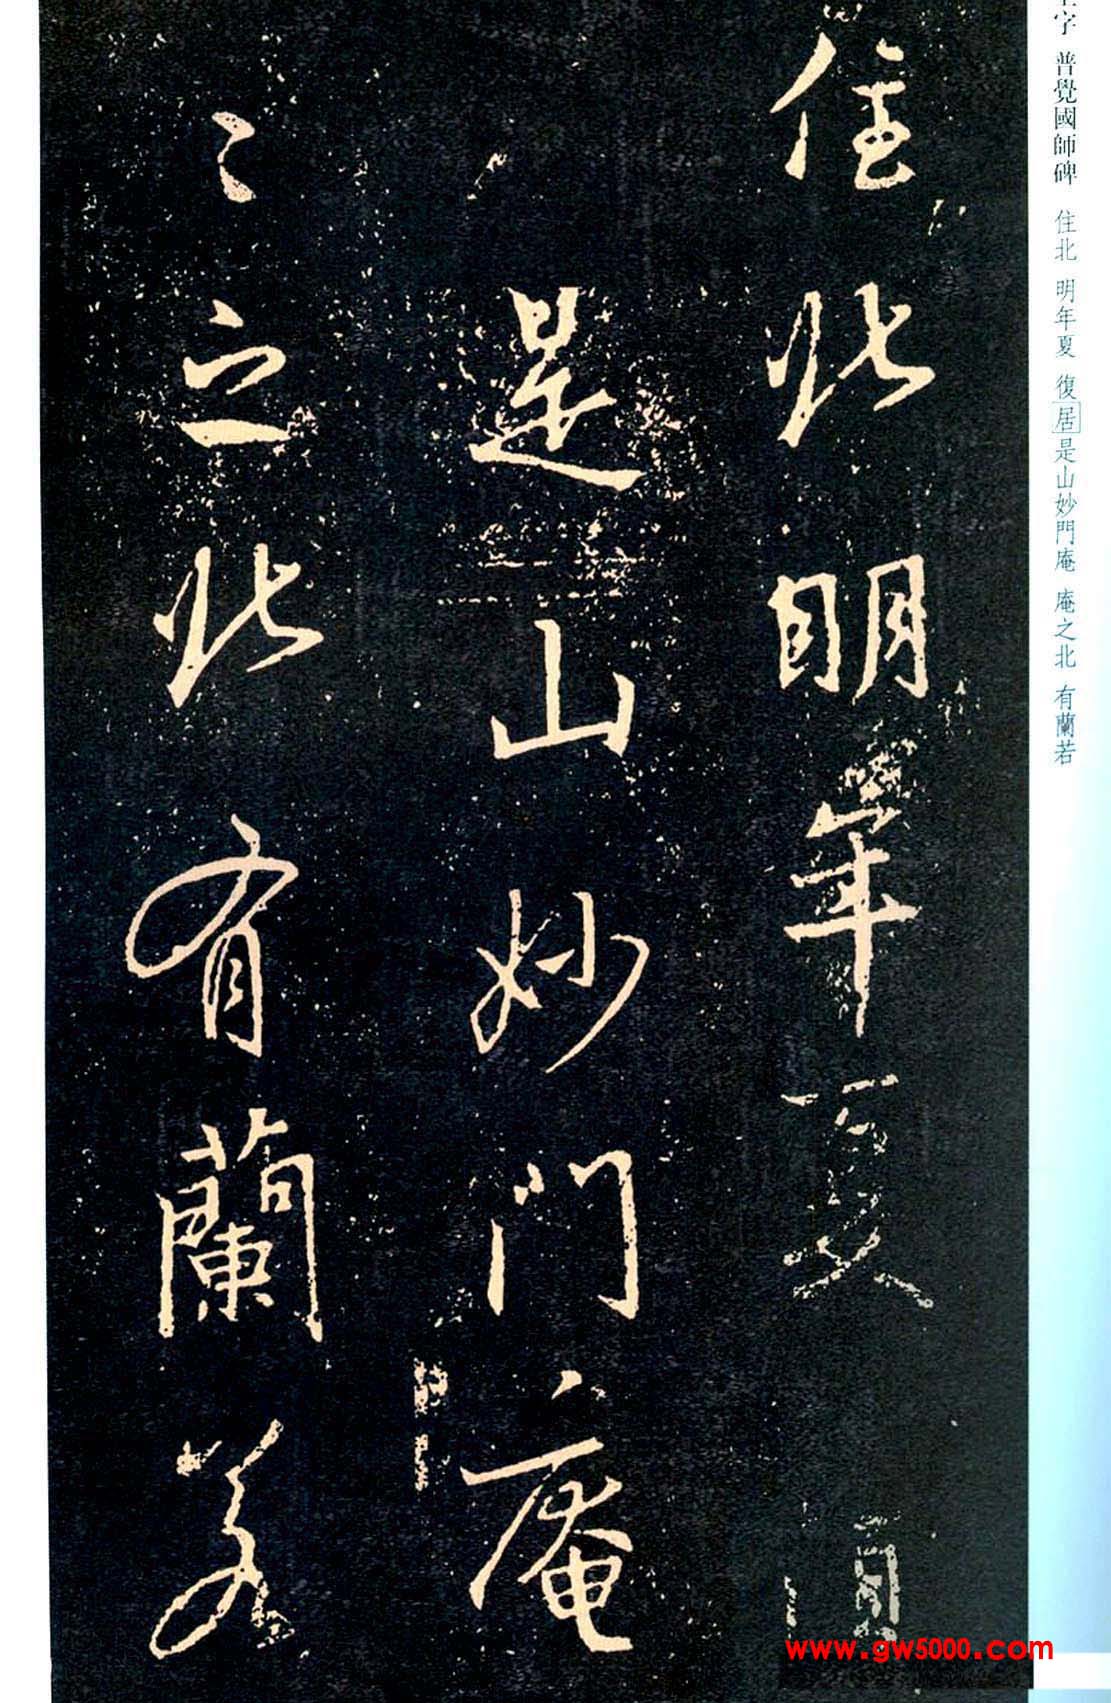 字 普覺國師碑 住北 明年夏 復居是山妙門庵 庵之北 有蘭若
住北明年夏
是山妙門庵
〻之北有蘭若
www.gw5000.com